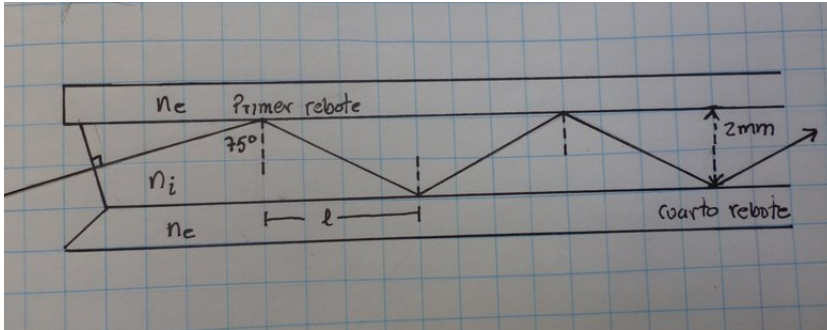 ne Primer rebote
75°
2mm
ni
l
ne
cuarto rebote